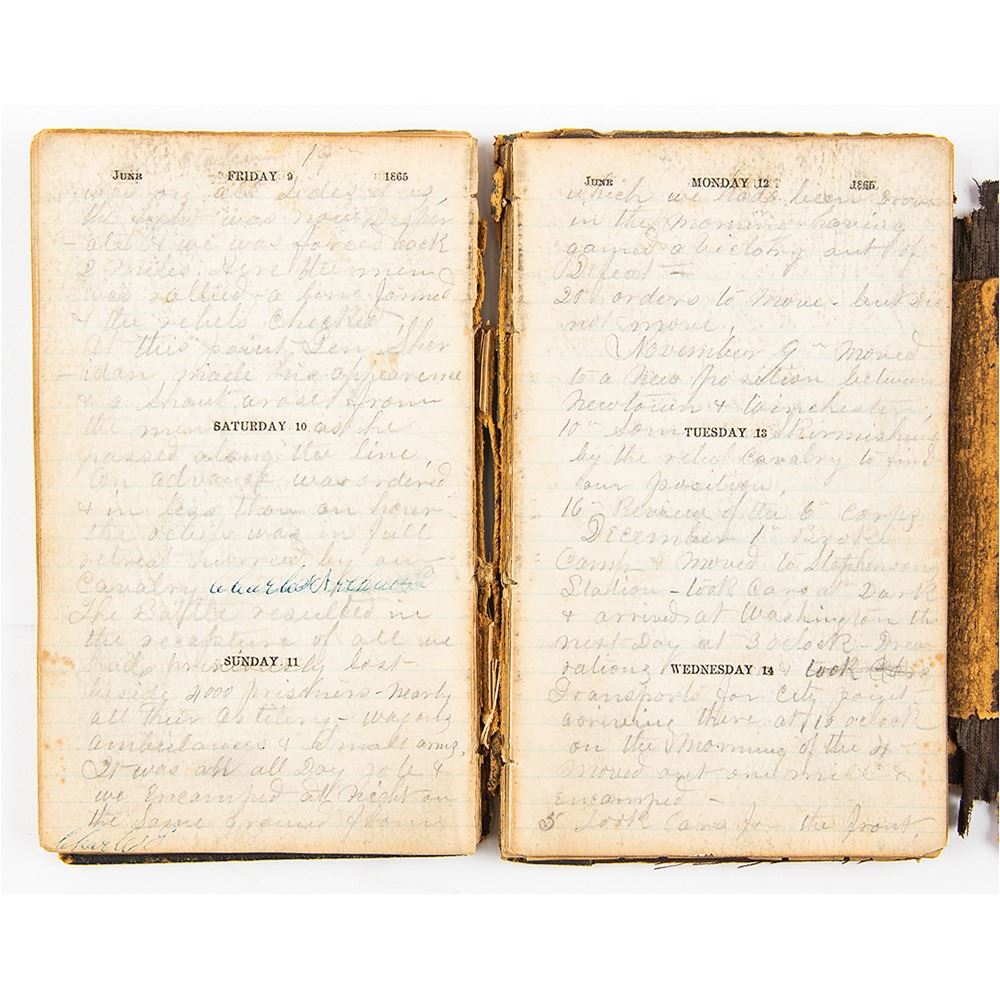 19
JUNE FRIDAY 9 1865
was on all sides of us
the fight was now Desper
ate & we was forced back
2 Miles. Here the men
was rallied - a line formed
& the rebels checked
at this point Gen Sher
idan made his appearence
& a Shout arose from
the men as he
SATURDAY 10
passed along the line
An advance was ordered
& in less than an hour
the rebels was in full
retreat hurried by our
Cavalry
The Battle resulted in
the recapture of all we
had previously lost
SUNDAY 11
beside 4000 prisoners - nearly
all their artilery - wagons
ambulances & small arms,
It was an all Day job &
we Encamped at Night on
the Same Ground from
Charles
JUNE MONDAY 12 1865
which we had been Drove
in the Morning having
gained a victory out of
Defeat -
20 orders to Move - but did
not move,
November 9th Moved
to a New Position between
Newtown & Winchester,
10th Some Skirmishing
TUESDAY 13
by the rebel Cavalry to find
our Position,
16th Review of the 6th corps
December 1st Broke
Camp & Moved to Stephenson
Station - took Cars at Dark
& arrived at Washington the
next Day at 3 oclock - Drew
rations & took Cars
WEDNESDAY 14
Transports for City point
arriving there at 10 oclock
on the Morning of the
Moved out one mile &
encamped -
5 Took Cars for the front,